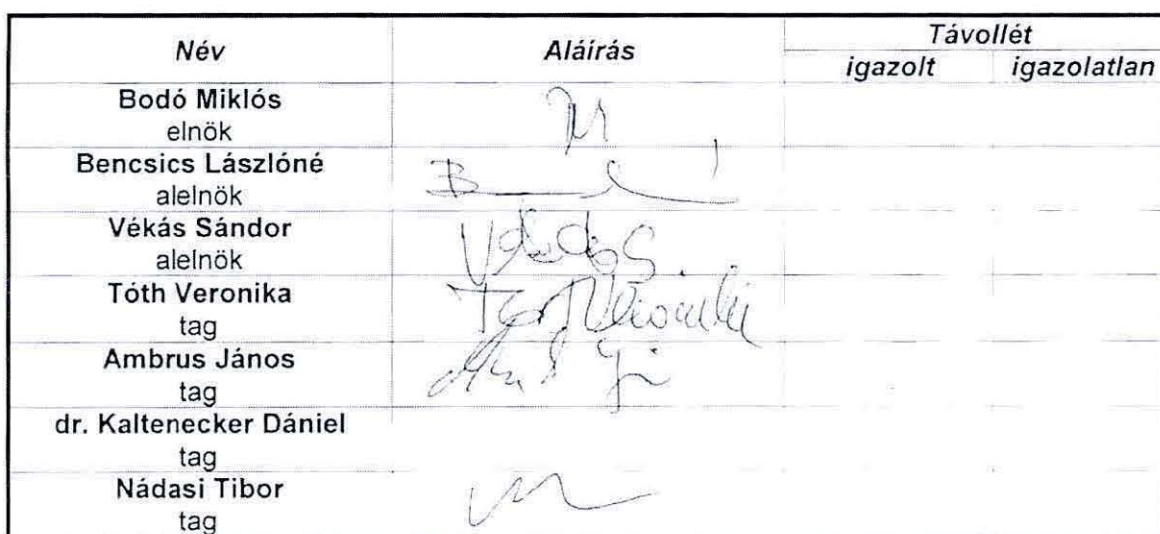 Név Aláírás Távollét
igazolt igazolatlan
Bodó Miklós
elnök
Bencsics Lászlóné
alelnök
Vékás Sándor
alelnök
Tóth Veronika
tag
Ambrus János
tag
dr. Kaltenecker Dániel
tag
Nádasi Tibor
tag